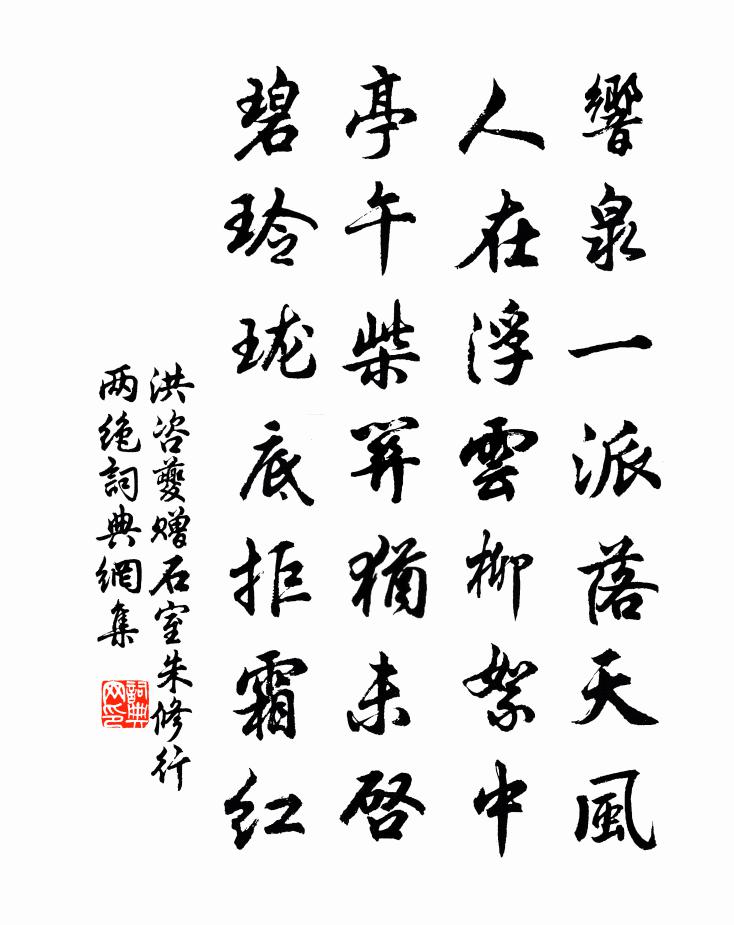 響泉一派落天風
人在浮雲柳絮中
亭午柴關猶未啓
碧玲瓏底拒霜紅
洪咨夔赠石室朱修行
两绝詞典網集
詞典网印